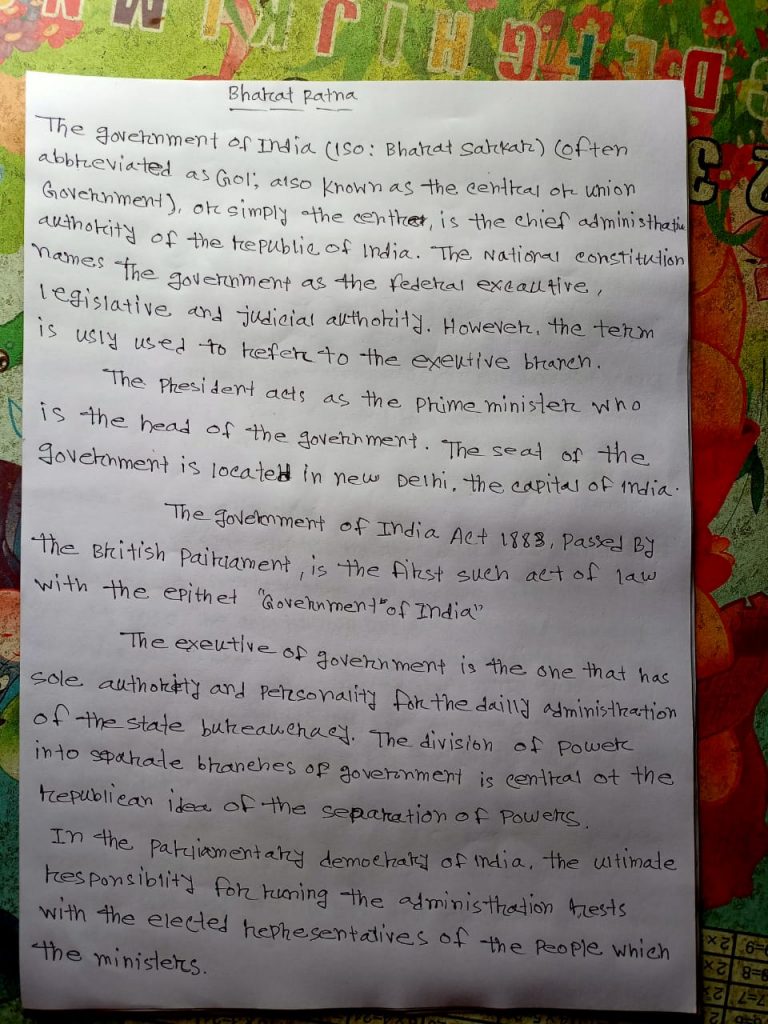 D E F G H I J K L M N
Bharat Ratna
The government of India (ISO: Bharat Sarkar) (often
abbreviated as GoI; also known as the central or union
Government), or simply the center, is the chief administrative
authority of the republic of India. The National constitution
names the government as the federal excautive,
legislative and judicial authority. However, the term
is usly used to refer to the exeutive branch.
The President acts as the prime minister who
is the head of the government. The seat of the
government is located in new Delhi, the capital of india.
The government of India Act 1883, Passed By
the British Pairiament, is the first such act of law
with the epithet "Government" of India"
The exeutive of government is the one that has
sole authority and personality for the dailly administration
of the state bureaucracy. The division of power
into separate branches of government is central ot the
republican idea of the separation of powers.
In the parliamentary democraty of india, the ultimate
responsiblity for runing the administration rests
with the elected representatives of the people which
the ministers.